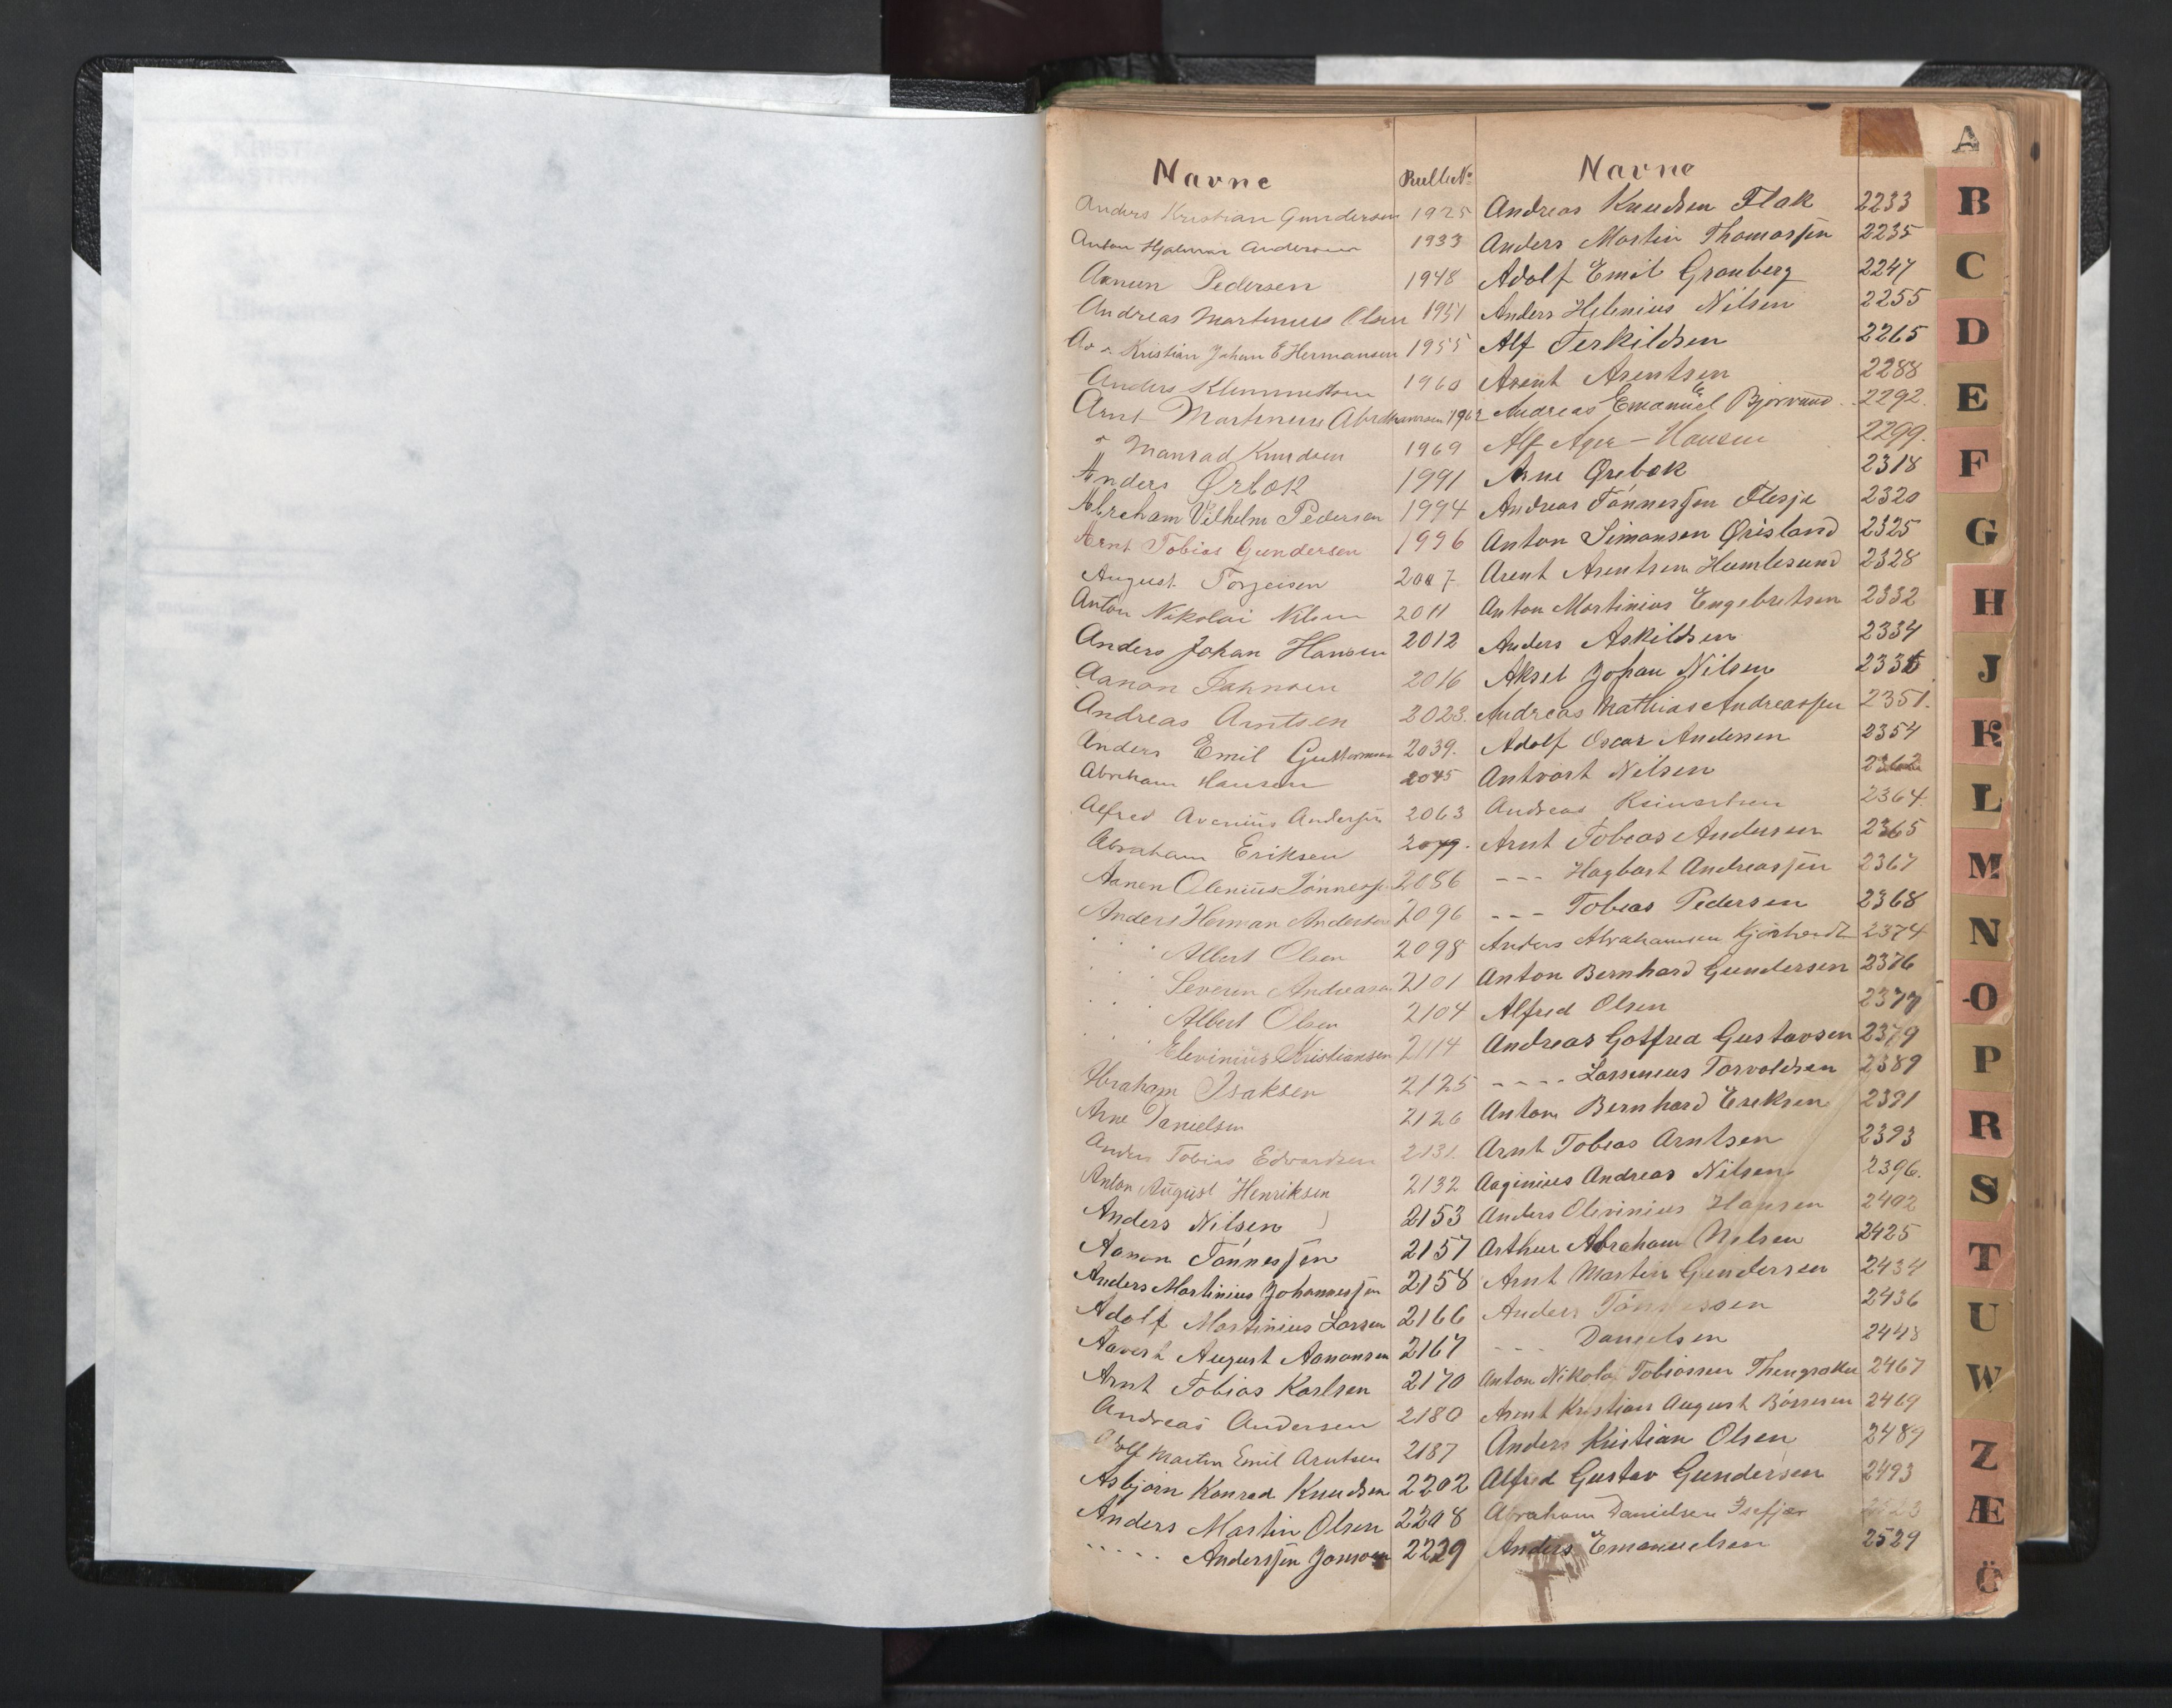 Navne Rulle No
Anders Kristian Gundersen 1925
Anton Hjalmar Andersen 1933
Aanen Pedersen 1948
Andreas Martinius Olsen 1951
Kristian Johan E Hermansen 1955
Anders Klemmetsen 1960
Arnt Martinius Abrahamsen 1962
" Manrad Knudsen 1969
Anders Ørbok 1991
Abraham Vilhelm Pedersen 1994
Arnt Tobias Gundersen 1996
August Torgersen 2007
Anton Nikolai Nilsen 2011
Anders Johan Hansen 2012
Aanon Jahnsen 2016
Andreas Arntsen 2023.
Anders Emil Guttormsen 2039.
Abraham Hansen 2045
Alfred Avenius Anderssen 2063
Abraham Eriksen 2079.
Aanen Olenius Tønness. 2086
Anders Herman Andersen 2096
" Albert Olsen 2098
" Severin Andreasen 2101
" Albert Olsen 2104
" Elevinius Kristiansen 2114
Abraham Isaksen 2125
Arne Danielsen 2126
Anders Tobias Edvardsen 2131
Anton August Henriksen 2132
Anders Nilsen 2153
Aanon Tønnessen 2157
Anders Martinius Johannessen 2158
Adolf Martinius Larsen 2166
Aavert August Aanonsen 2167
Arnt Tobias Karlsen 2170
Andreas Andersen 2180
Adolf Martin Emil Arntsen 2187
Asbjørn Konrad Knudsen 2202
Anders Martin Olsen 2208
----- Anderssen Jonsen 2229
Navne
Andreas Knudsen Flak 2233
Anders Martin Thomassen 2235
Adolf Emil Granberg 2247
Anders Helinius Nilsen 2255
Alf Terkildsen 2265
Arent Arentsen 2288
Andreas Emanuel Bjorvand 2292.
Alf Ager-Hansen 2299.
Arne Ørebek 2318
Andreas Tønnessen Flesja 2320
Anton Simonsen Ørisland 2325
Arent Arentsen Humlesund 2328
Anton Martinius Engebretsen 2332
Anders Askildsen 2334
Aksel Johan Nilsen 2335
Andreas Mathias Andreassen 2351.
Adolf Oscar Andersen 2354
Antvart Nilsen 2362
Andreas Reinertsen 2364.
Arnt Tobias Andersen 2365
--- Hagbart Andreassen 2367
--- Tobias Pedersen 2368
Anders Abrahamsen 2374
Anton Bernhard Gundersen 2376
Alfred Olsen 2377
Andreas Gotfred Gustavsen 2379
---- Larsenius Torvaldsen 2389
Anton Bernhard Eriksen 2391
Arnt Tobias Arntsen 2393
Aaginius Andreas Nilsen 2396.
Anders Olivinius Hansen 2402
Arthur Abraham Nilsen 2425
Arnt Martin Gundersen 2434
Anders Tønnessen 2436
--- Danielsen 2443
Anton Nikolai Tobiassen 2467
Arent Kristian August Børresen 2469
Anders Kristian Olsen 2489
Alfred Gustav Gundersen 2493
Abraham Danielsen Isefjær
Anders Emanuelsen 2529
A
B
C
D
E
F
G
H
J
K
L
M
N
O
P
R
S
T
U
W
Z
Æ
Ö